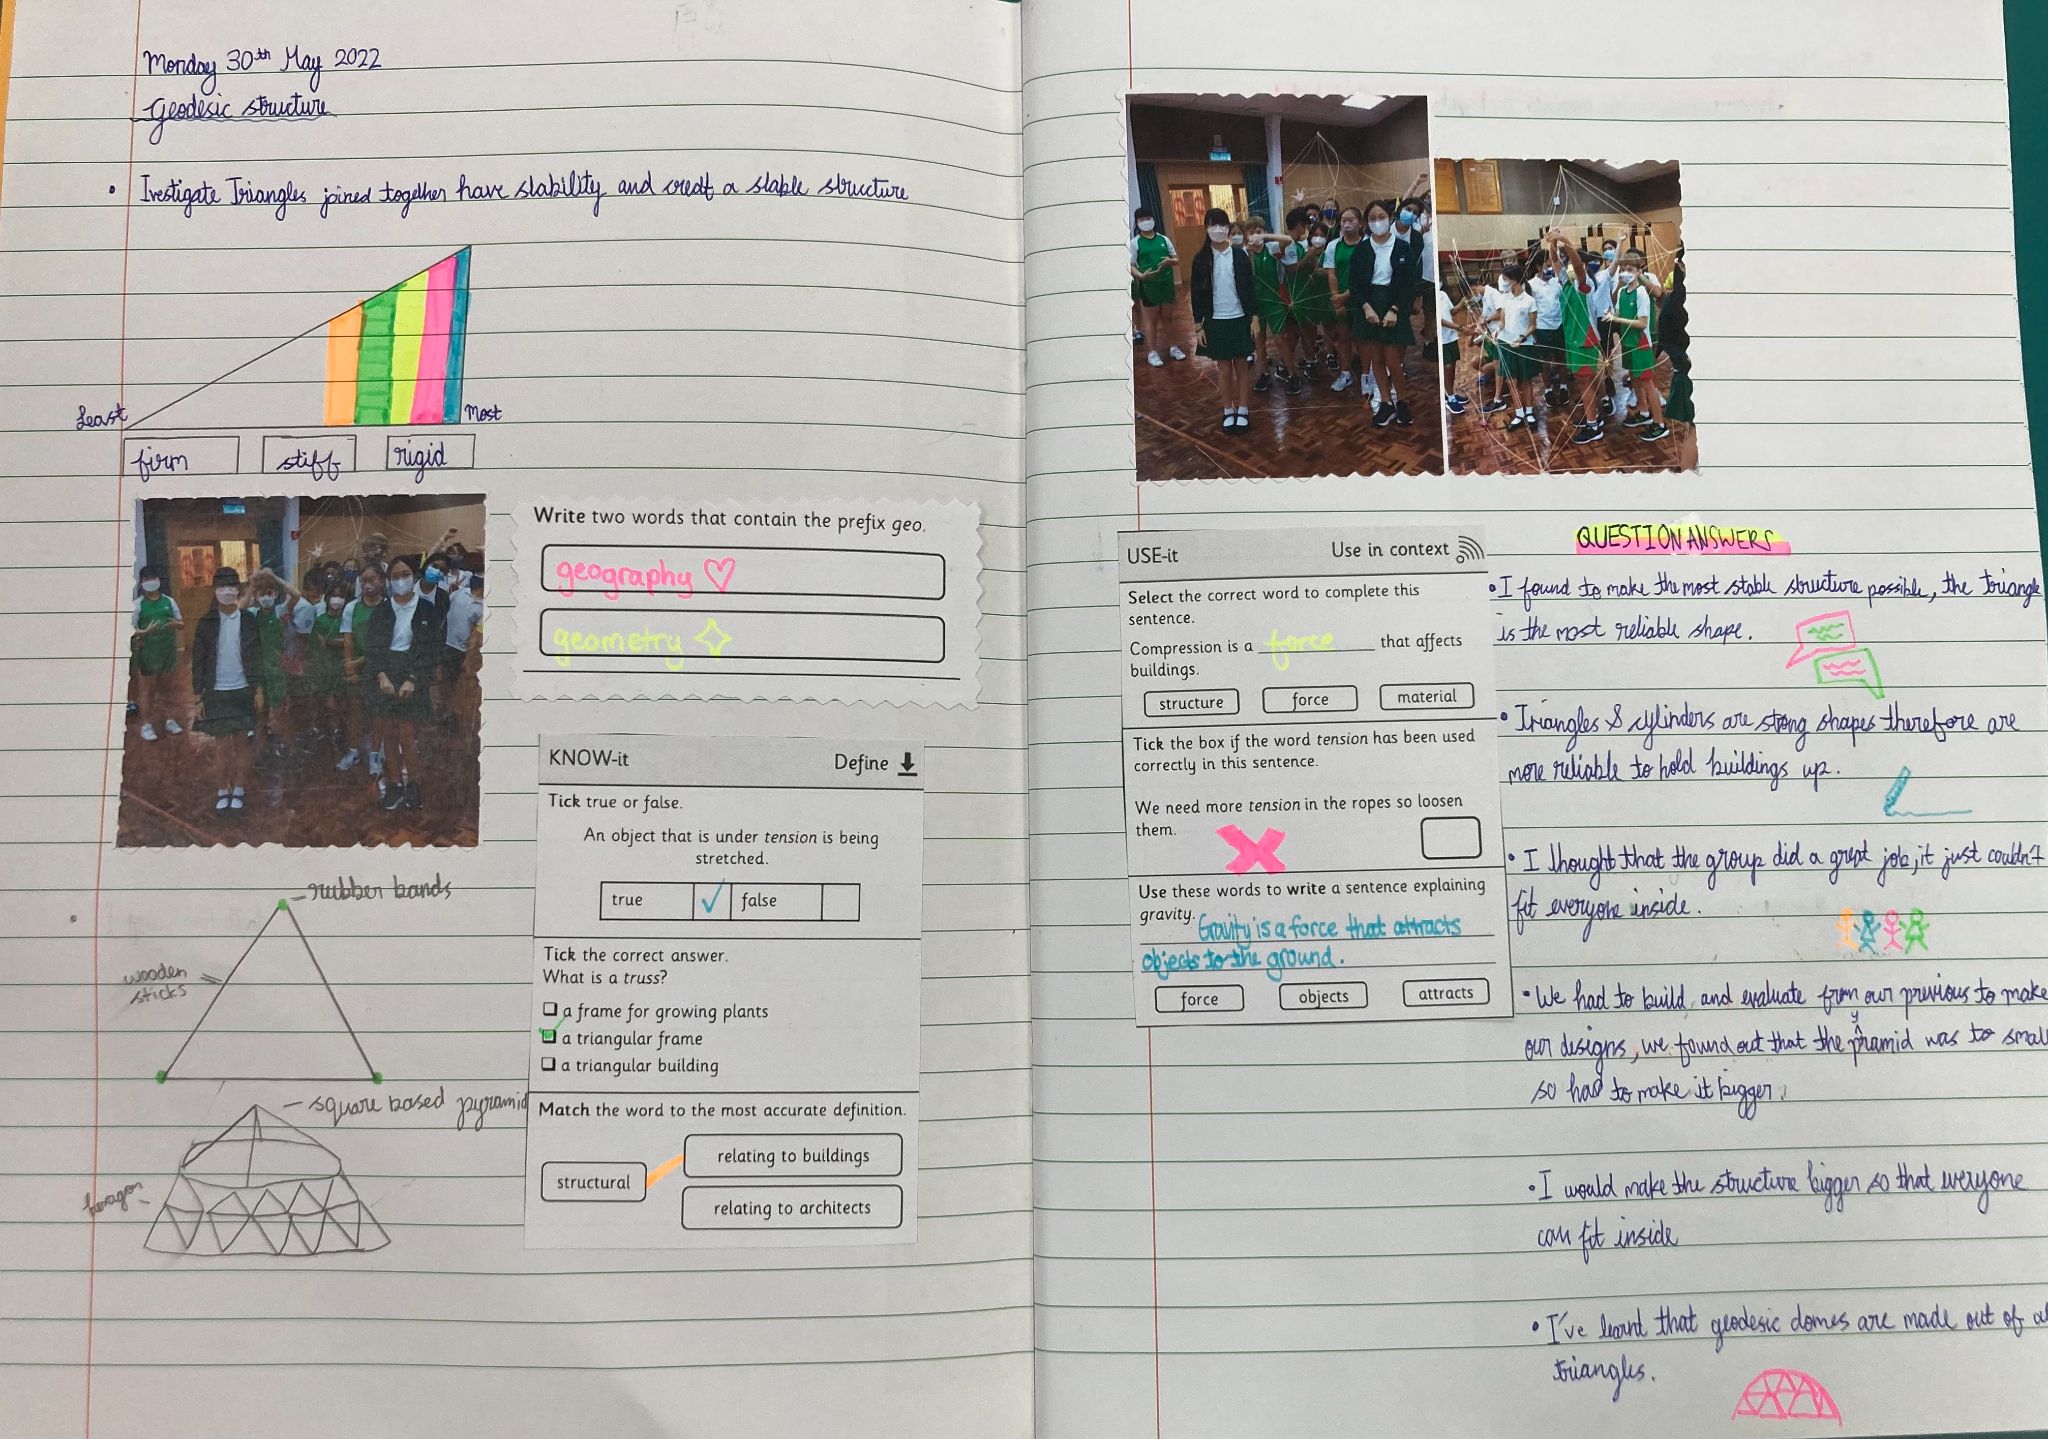 Monday 30th May 2022
Geodesic structure
• Ivestigate Triangles joined together have stability and creat a stable structure
Least
Most
firm
stiff
rigid
Write two words that contain the prefix geo.
geography ♡
geometry
KNOW-it
Define
Tick true or false.
An object that is under tension is being
stretched.
true ✓ false
Tick the correct answer.
What is a truss?
a frame for growing plants
a triangular frame
a triangular building
Match the word to the most accurate definition.
structural
relating to buildings
relating to architects
rubber bands
wooden
sticks
square based pyramid
hexagon
USE-it
Use in context
Select the correct word to complete this
sentence.
Compression is a force that affects
buildings.
structure force material
Tick the box if the word tension has been used
correctly in this sentence.
We need more tension in the ropes so loosen
them.
Use these words to write a sentence explaining
gravity. Gravity is a force that attracts
objects to the ground.
force objects attracts
QUESTION ANSWERS
• I found to make the most stable structure possible, the triangle
is the most reliable shape.
• Triangles & cylinders are strong shapes therefore are
more reliable to hold buildings up.
• I thought that the group did a great job, it just couldn't
fit everyone inside.
• We had to build, and evaluate from our previous to make
our designs, we found out that the pyramid was to small
so had to make it bigger.
• I would make the structure bigger so that everyone
can fit inside
• I've learnt that geodesic domes are made out of
triangles.